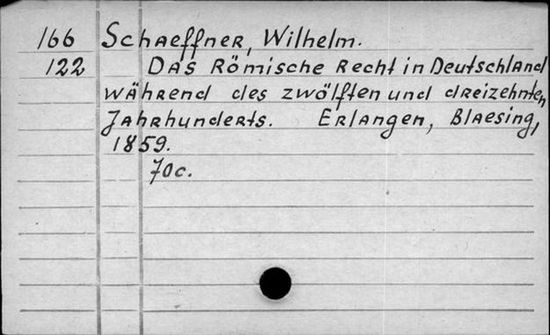 166 Schaeffner, Wilhelm.
122 Das Römische Recht in Deutschland
während des zwölften und dreizehnten
Jahrhunderts. Erlangen, Blaesing,
1859.
70c.